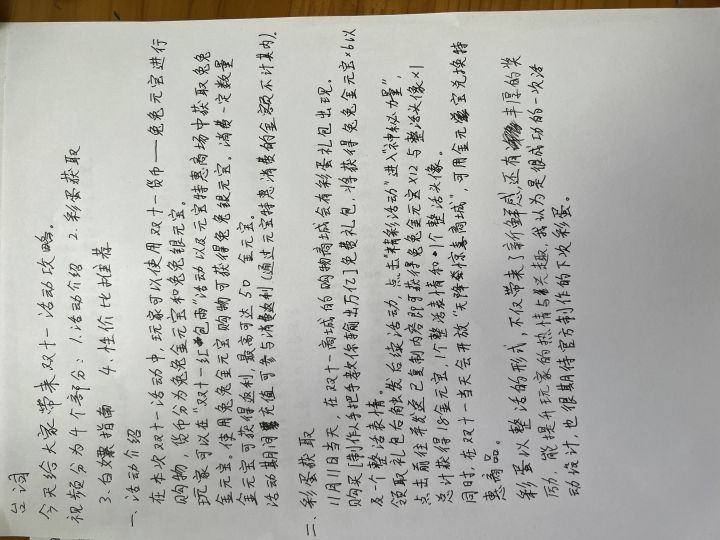 台词
今天给大家带来双十一活动攻略。
视频分为4个部分：1.活动介绍 2.彩蛋获取
3.白嫖指南 4.性价比推荐
一、活动介绍
在本次双十一活动中，玩家可以使用双十一货币——兔兔元宝进行
购物，货币分为兔兔金元宝和兔兔银元宝。
玩家可以在“双十一红包雨”活动以及元宝特惠商场中获取兔兔
金元宝。使用兔兔金元宝购物可获得兔兔银元宝。消费一定数量
金元宝可获得返利，最高可达50金元宝。
活动期间充值可参与消费返利（通过元宝特惠消费的金额不计其内）。
二、彩蛋获取
11月11日当天，在双十一商城的购物商城会有彩蛋礼包出现。
购买[制作人手把手教你输出万亿]免费礼包，将获得兔兔金元宝×6以
及一个整活表情。
领取礼包后触发后续活动，点击“精彩活动”进入“神秘力量”，
点击前往并发送已复制内容即可获得兔兔金元宝×12与整活头像×1
总计获得18金元宝，1个整活表情和1个整活头像。
同时，在双十一当天会开放“天降惊喜商城”，可用金元宝兑换特
惠商品。
彩蛋以整活的形式，不仅带来了新鲜感，还有丰厚的奖
励，能提升玩家的热情与兴趣，我认为是很成功的一次活
动设计，也很期待官方制作的下次彩蛋。